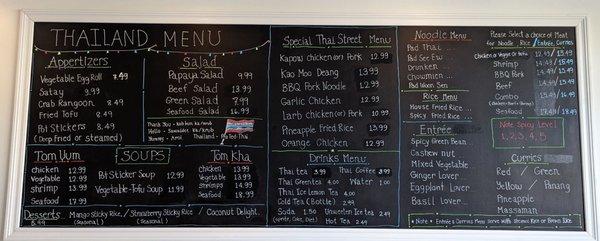 THAILAND MENU
Appetizers
Vegetable Egg Roll 8.49
Satay 9.99
Crab Rangoon 8.49
Fried Tofu 8.49
Pot Stickers 8.49
(Deep fried or steamed)
Salad
Papaya Salad 9.99
Beef Salad 13.99
Green Salad 7.99
Seafood Salad 16.99
Thank You
Hello
Thailand
Pad Thai
Tom Yum
chicken 12.99
Vegetable 12.99
shrimp 13.99
Seafood 17.99
SOUPS
Pot Sticker Soup 12.99
Vegetable-Tofu Soup 11.99
Tom Kha
chicken 13.99
Vegetable 13.99
Shrimps 14.99
Seafood 18.99
Desserts
8.99
Mango Sticky Rice / Strawberry Sticky Rice / Coconut Delight
(Seasonal) (Seasonal)
Special Thai Street Menu
Kapow chicken (or) Pork 12.99
Kao Moo Deang 13.99
BBQ Pork Noodle 12.99
Garlic Chicken 12.99
Larb chicken (or) Pork 10.99
Pineapple Fried Rice 13.99
Orange Chicken 12.99
Drinks Menu
Thai tea 3.99 Thai Coffee 3.99
Thai Green tea 4.00 Water 1.00
Thai Ice Lemon Tea 4.00
Cold Tea (Bottle) 2.49
Soda 1.50 Unsweeten Ice Tea 2.49
(Sprite, Coke, Diet) Hot Tea 2.49
Noodle Menu
Pad Thai ...
Pad See Ew ...
Drunken ...
Chowmien ...
Pad Woon Sen
Rice Menu
House Fried Rice
Spicy Fried Rice
Entrée
Spicy Green Bean
Cashew nut
Mixed Vegetable
Ginger Lover
Eggplant Lover
Basil Lover
Please Select a choice of Meat
for Noodle, Rice / Entrée, Curries
Chicken or Veggie or Tofu 12.49 / 13.99
Shrimp 14.49 / 15.49
BBQ Pork 14.49 / 15.49
Beef 14.49 / 15.49
Combo 15.49 / 16.49
Seafood 17.49 / 18.49
Note Spicy Level
1, 2, 3, 4, 5
Curries
Red / Green
Yellow / Panang
Pineapple
Massaman
*Note* Entrée & Curries Menu Serve with Steamed Rice or Brown Rice